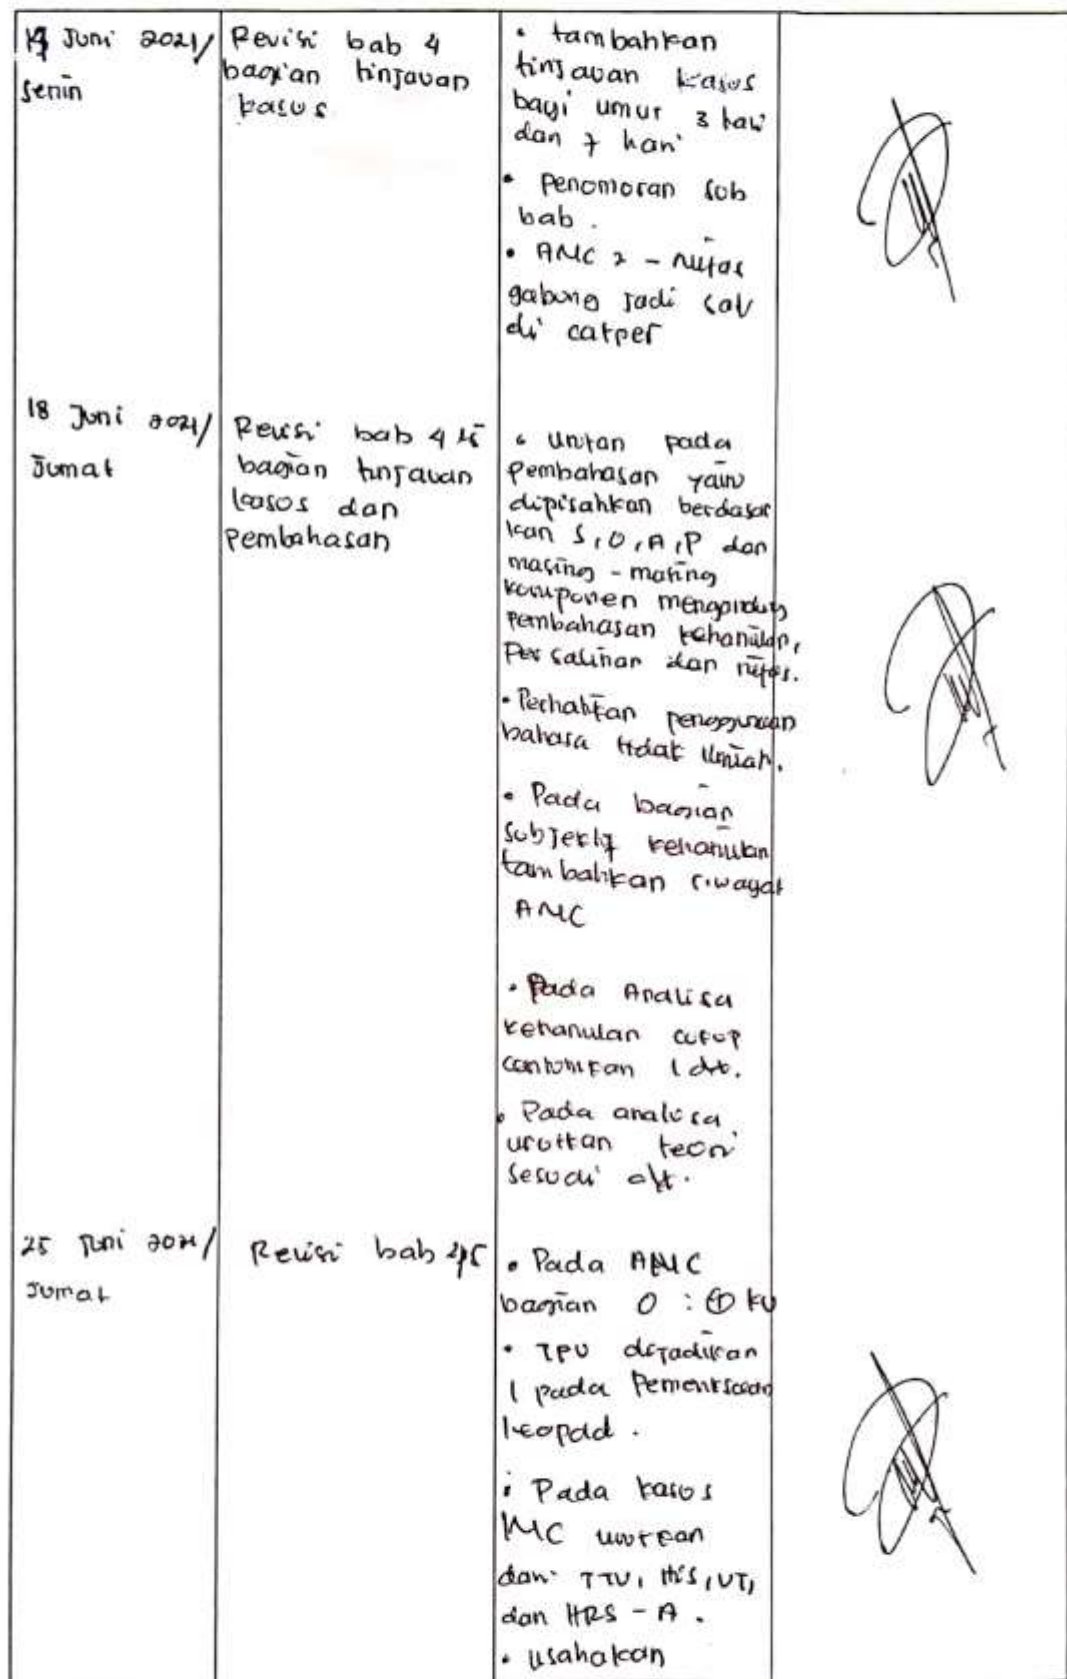 14 Juni 2021/
Senin
Revisi bab 4
bagian tinjauan
kasus
• tambahkan
tinjauan kasus
bayi umur 3 hari
dan 7 hari
• Penomoran sub
bab.
• ANC 2 - nifas
gabung jadi satu
di catper
18 Juni 2021/
Jumat
Revisi bab 4
bagian tinjauan
kasus dan
Pembahasan
• Urutan pada
pembahasan yaitu
dipisahkan berdasar
kan S, O, A, P dan
masing - masing
komponen mengandung
pembahasan kehamilan,
Persalinan dan nifas.
• Perhatikan penggunaan
bahasa tidak ilmiah.
• Pada bagian
subjektif kehamilan
tambahkan riwayat
ANC
• Pada Analisa
kehamilan cukup
cantumkan 1
• Pada analisa
urutkan teori
sesuai
25 Juni 2021/
Jumat
Revisi bab 4,5
• Pada ANC
bagian O : ⊕ KU
• TFU dijadikan
1 pada Pemeriksaan
leopold.
• Pada kasus
INC urutkan
dari TTV, His, VT,
dan HRS - A.
• Usahakan